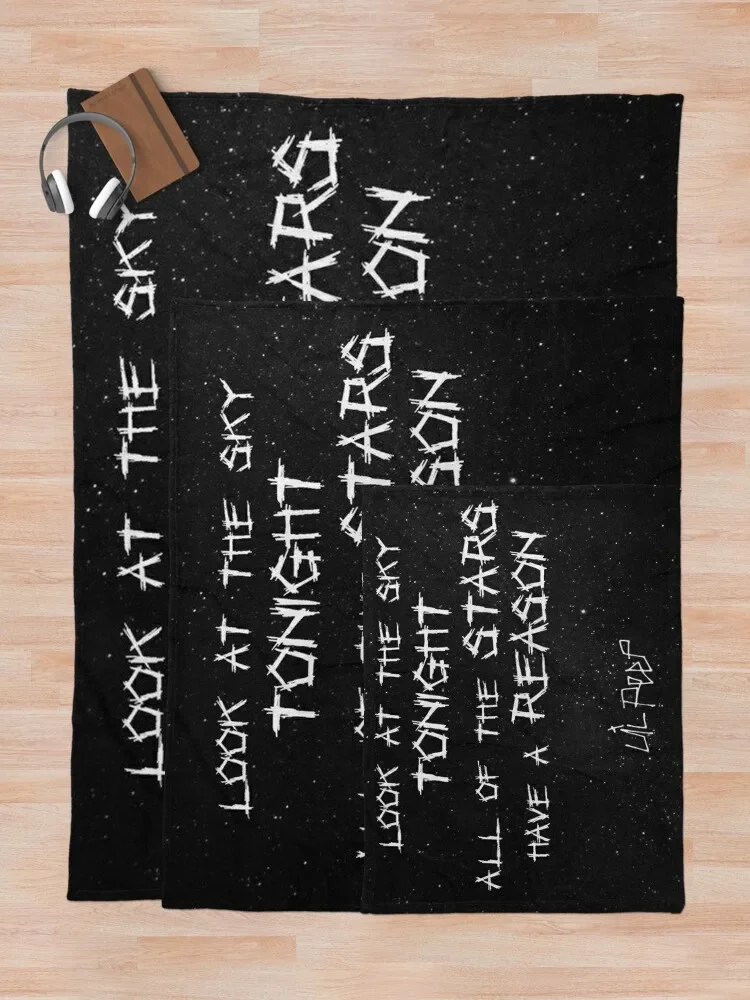 LOOK AT THE SKY
ARS
ON
LOOK AT THE SKY
TONIGHT
STARS
SON
LOOK AT THE SKY
TONIGHT
ALL OF THE STARS
HAVE A REASON
LIL PEEP